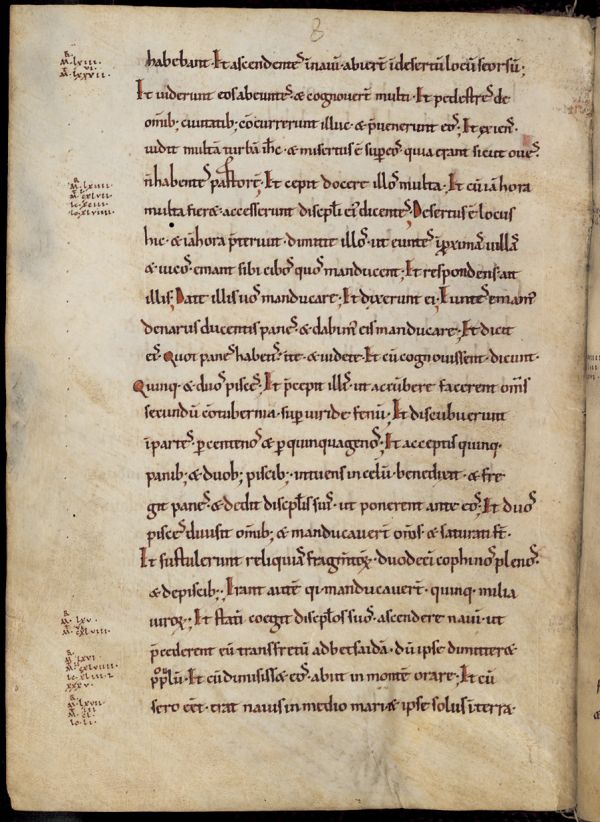 8
habebant. Et ascendenteſ ĩnauĩ. abier̄t ĩdesertũ locũ seorsũ;
Et uiderunt eos abeunteſ. & cognouer̄t multi. Et pedeſtreſ de
omĩb; ciuitatib; cõcurrerunt illuc & p̄uenerunt eoſ; Et exienſ.
uidit multã turbã ih̄c. & misertus ē sup eoſ. quia erant sicut oueſ.
ñ habenteſ paſtorē; Et cepit docere illoſ multa. Et cũ iã hora
multa fier&. accesserunt discipl̄i eiꝰ dicenteſ. Desertus ē locus
hic. & iã hora p̄teriit. dimitte illoſ. ut eunteſ ĩ proximaſ uillaſ
& uicoſ. emant sibi ciboſ quoſ manducent; Et respondens. ait
illis. Date illis uoſ manducare; Et dixerunt ei; Eunteſ emam̄ꝰ
denarus ducentis paneſ. & dabimꝰ eis manducare; Et dicit
eiſ. Quot paneſ habetiſ. ite & uidete. Et cũ cognouissent. dicunt.
Quinq. & duoſ pisceſ; Et p̄cepit illiſ. ut accũbere facerent om̄s
secundũ cõtubernia. sup uiride fenũ; Et discubuerunt
ĩ parteſ. p centenoſ & p quinquagenoſ; Et acceptis quinq.
panib; & duob; piscib;. intuens in celũ. benedixit. & fre
git paneſ. & dedit discipl̄is suiſ. ut ponerent ante eoſ; Et duoſ
pisceſ diuisit omĩb; & manducauer̄t om̄s. & saturati sт̄.
Et suſtulerunt reliquiaſ fragm̄toꝝ. duodecĩ cophinoſ plenoſ.
& de piscib;. Erant autē qi manducauer̄t. quinq. milia
uiroꝝ; Et ſtatĩ coegit discipl̄os suoſ. ascendere nauĩ. ut
p̄cederent eũ transfretũ ad betsaidã. dũ ipse dimitter&
pop̄lũ. Et cũ dimisiss& eoſ. abiit in montē orare; Et cũ
sero eēt. erat nauis in medio mari & ipse solus ĩ terra.
M. lxiii.
vi
M. lxxvii.
M. lxiiii.
M. cxlvii.
lc. xciii.
io. xlviiii.
M. lxv.
M. cxlviii.
M. lxvi.
M. cxlviiii.
M. lxvii.
M. cl.
io. li.